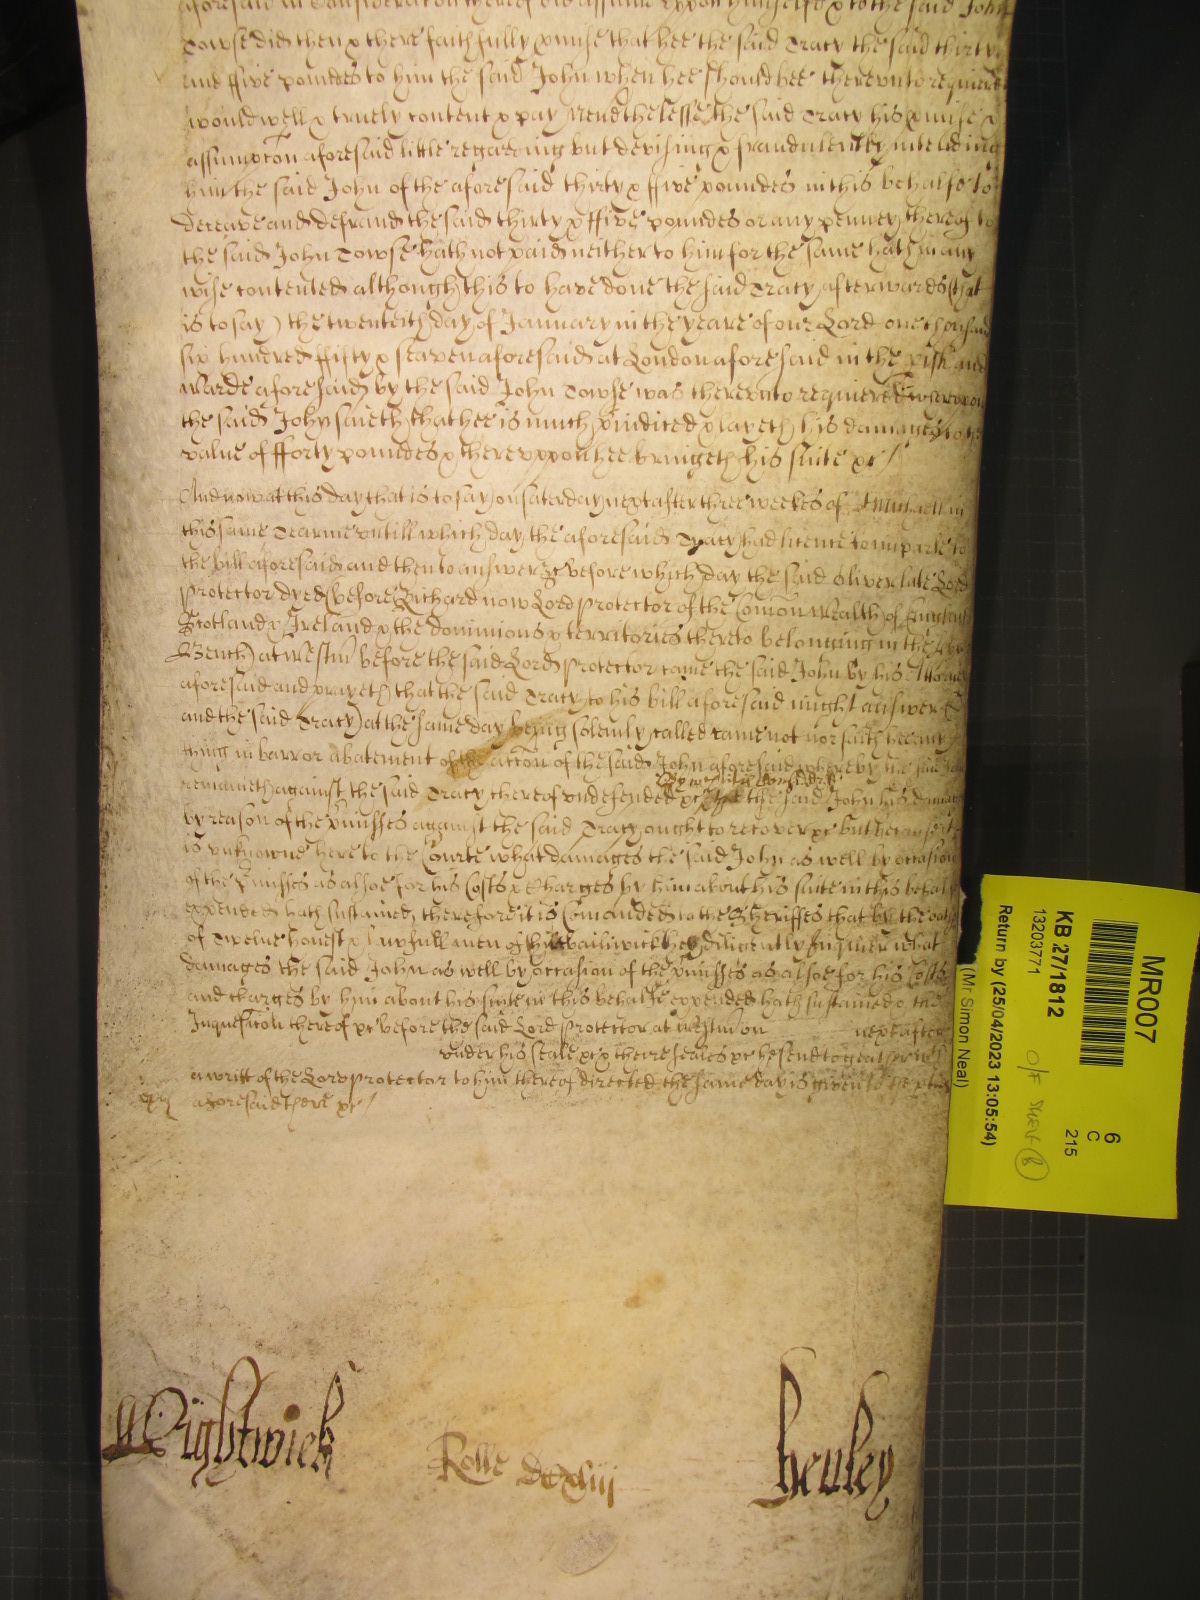 aforesaid in Consideracon thereof did assume uppon himselfe & to the said John
Towse did then & there faithfully pmise that hee the said Tracy the said thirty
and ffive poundes to him the said John when hee should bee therevnto required
would well & truely content & pay Neverthelesse the said Tracy his pmise &
assumpcon aforesaid little regarding but devising & fraudulently intending
him the said John of the aforesaid thirty & ffive poundes in this behalfe to
deceave and defraud the said thirty & ffive poundes or any penney thereof to
the said John Towse hath not paid neither to him for the same hath in any
wise contented although this to have done the said Tracy afterwards (that
is to say) the twenteith day of January in the yeare of our Lord one thousand
six hundred ffifty & seaven aforesaid at London aforesaid in the pish and
Warde aforesaid by the said John Towse was therevnto required Wherevpon
the said John saieth that hee is much piudiced & layeth his damages to the
value of fforty poundes & therevppon hee bringeth his suite &c
And now at this day that is to say on saterday next after three weekes of St Michaell in
this same Tearme vntill which day the aforesaid Tracy had licence to imparle to
the bill aforesaid and then to answer &c before which day the said Oliver late Lord
Protector dyed before Richard now Lord Protector of the Comon Wealth of England
Scotland & Ireland & the dominions & territories thereto belonging in the vpper
Bench at Westm before the said Lord Protector came the said John by his Attorney
aforesaid and prayeth that the said Tracy to his bill aforesaid might answer &c
and the said Tracy at the same day being solemly called came not nor saith hee any
thing in barr or abatement of the accon of the said John aforesaid whereby the said John
remaineth against the said Tracy thereof vndefended &c the said John his damages
by reason of the pmisses against the said Tracy ought to recover &c but because it
is vnknowne here to the Courte what damages the said John as well by occasion
of the pmisses as alsoe for his Costs & Charges by him about his suite in this behalfe
expended hath sustained, therefore it is Comanded to the Sheriffes that by the oath
of Twelve honest & lawfull men of his bailiwick hee diligently Inquier what
damages the said John as well by occasion of the pmisses as alsoe for his Costs
and charges by him about his suite in this behalfe expended hath sustained & the
Inquesicon thereof &c before the said Lord Protector at Westm on next after
under his seale &c & theire seales &c he send together with
a writt of the Lord Protector to him thereof directed the same day is given to the
aforesaid there &c
Wightwick
Rolle dcxliij
henley
MR007
KB 27/1812
13203771
6
C
215
O/F
Return by (25/04/2023 13:05:54)
(Mr Simon Neal)